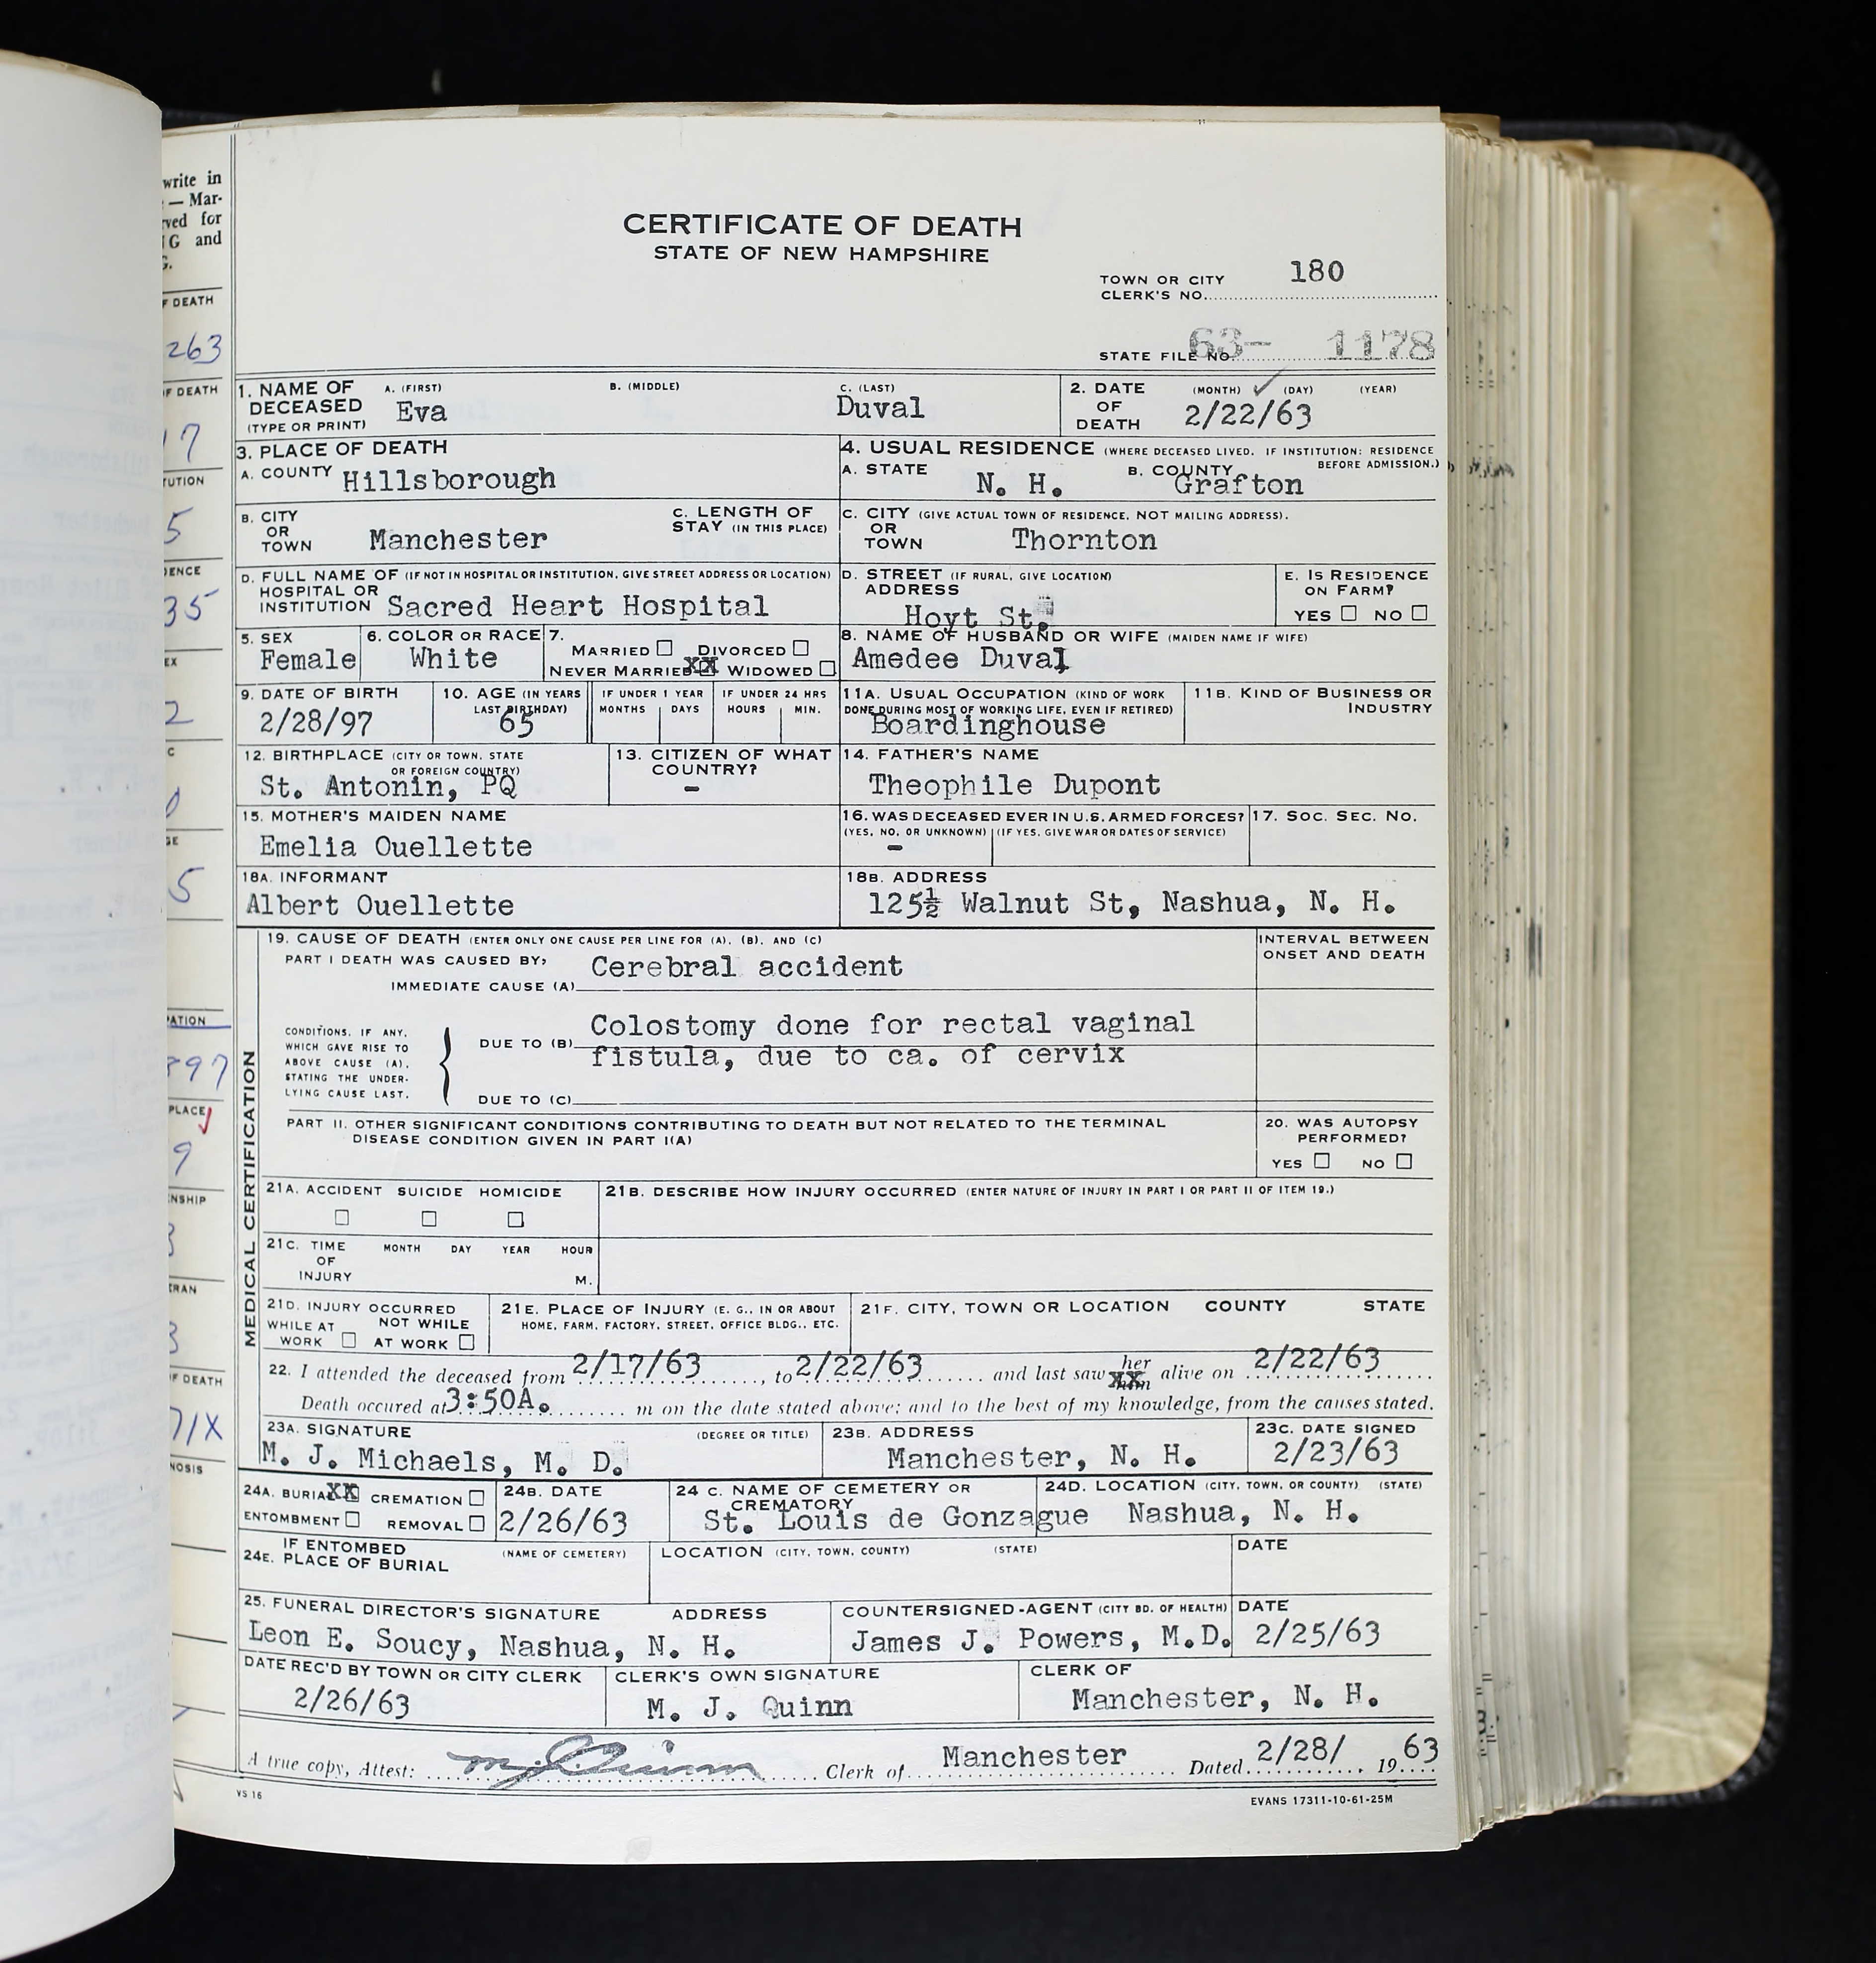 write in
— Mar-
ved for
G and
G.
F DEATH
263
F DEATH
17
TUTION
5
DENCE
35
EX
2
C
0
GE
5
PATION
897
PLACE
9
NSHIP
3
ERAN
3
F DEATH
71X
NOSIS
CERTIFICATE OF DEATH
STATE OF NEW HAMPSHIRE
TOWN OR CITY
CLERK'S NO. 180
STATE FILE NO. 63- 1178
1. NAME OF DECEASED (TYPE OR PRINT) A. (FIRST) B. (MIDDLE) C. (LAST)
Eva Duval
2. DATE OF DEATH (MONTH) ✓ (DAY) (YEAR)
2/22/63
3. PLACE OF DEATH
A. COUNTY Hillsborough
4. USUAL RESIDENCE (WHERE DECEASED LIVED. IF INSTITUTION: RESIDENCE BEFORE ADMISSION.)
A. STATE N. H. B. COUNTY Grafton
B. CITY OR TOWN Manchester
C. LENGTH OF STAY (IN THIS PLACE)
C. CITY (GIVE ACTUAL TOWN OF RESIDENCE, NOT MAILING ADDRESS).
OR TOWN Thornton
D. FULL NAME OF (IF NOT IN HOSPITAL OR INSTITUTION, GIVE STREET ADDRESS OR LOCATION)
HOSPITAL OR INSTITUTION Sacred Heart Hospital
D. STREET (IF RURAL, GIVE LOCATION)
ADDRESS Hoyt St.
E. IS RESIDENCE ON FARM?
YES ☐ NO ☐
5. SEX
Female
6. COLOR OR RACE
White
7. MARRIED ☐ DIVORCED ☐
NEVER MARRIED XX WIDOWED ☐
8. NAME OF HUSBAND OR WIFE (MAIDEN NAME IF WIFE)
Amedee Duval
9. DATE OF BIRTH
2/28/97
10. AGE (IN YEARS LAST BIRTHDAY)
65
IF UNDER 1 YEAR
MONTHS DAYS
IF UNDER 24 HRS
HOURS MIN.
11A. USUAL OCCUPATION (KIND OF WORK DONE DURING MOST OF WORKING LIFE, EVEN IF RETIRED)
Boardinghouse
11B. KIND OF BUSINESS OR INDUSTRY
12. BIRTHPLACE (CITY OR TOWN, STATE OR FOREIGN COUNTRY)
St. Antonin, PQ
13. CITIZEN OF WHAT COUNTRY?
-
14. FATHER'S NAME
Theophile Dupont
15. MOTHER'S MAIDEN NAME
Emelia Ouellette
16. WAS DECEASED EVER IN U.S. ARMED FORCES?
(YES, NO, OR UNKNOWN) (IF YES, GIVE WAR OR DATES OF SERVICE)
-
17. SOC. SEC. NO.
18A. INFORMANT
Albert Ouellette
18B. ADDRESS
125½ Walnut St, Nashua, N. H.
MEDICAL CERTIFICATION
19. CAUSE OF DEATH (ENTER ONLY ONE CAUSE PER LINE FOR (A), (B), AND (C)
PART I DEATH WAS CAUSED BY:
IMMEDIATE CAUSE (A) Cerebral accident
INTERVAL BETWEEN ONSET AND DEATH
CONDITIONS, IF ANY, WHICH GAVE RISE TO ABOVE CAUSE (A), STATING THE UNDER-LYING CAUSE LAST.
DUE TO (B) Colostomy done for rectal vaginal
fistula, due to ca. of cervix
DUE TO (C)
PART II. OTHER SIGNIFICANT CONDITIONS CONTRIBUTING TO DEATH BUT NOT RELATED TO THE TERMINAL
DISEASE CONDITION GIVEN IN PART I(A)
20. WAS AUTOPSY PERFORMED?
YES ☐ NO ☐
21A. ACCIDENT SUICIDE HOMICIDE
☐ ☐ ☐
21B. DESCRIBE HOW INJURY OCCURRED (ENTER NATURE OF INJURY IN PART I OR PART II OF ITEM 19.)
21C. TIME OF INJURY MONTH DAY YEAR HOUR
M.
21D. INJURY OCCURRED
WHILE AT WORK ☐ NOT WHILE AT WORK ☐
21E. PLACE OF INJURY (E. G., IN OR ABOUT HOME, FARM, FACTORY, STREET, OFFICE BLDG., ETC.
21F. CITY, TOWN OR LOCATION COUNTY STATE
22. I attended the deceased from 2/17/63, to 2/22/63 and last saw her XX him alive on 2/22/63
Death occured at 3:50A. m on the date stated above; and to the best of my knowledge, from the causes stated.
23A. SIGNATURE (DEGREE OR TITLE)
M. J. Michaels, M. D.
23B. ADDRESS
Manchester, N. H.
23C. DATE SIGNED
2/23/63
24A. BURIAL XX CREMATION ☐
ENTOMBMENT ☐ REMOVAL ☐
24B. DATE
2/26/63
24 C. NAME OF CEMETERY OR CREMATORY
St. Louis de Gonzague
24D. LOCATION (CITY, TOWN, OR COUNTY) (STATE)
Nashua, N. H.
24E. IF ENTOMBED PLACE OF BURIAL (NAME OF CEMETERY)
LOCATION (CITY, TOWN, COUNTY) (STATE)
DATE
25. FUNERAL DIRECTOR'S SIGNATURE ADDRESS
Leon E. Soucy, Nashua, N. H.
COUNTERSIGNED-AGENT (CITY BD. OF HEALTH)
James J. Powers, M.D.
DATE
2/25/63
DATE REC'D BY TOWN OR CITY CLERK
2/26/63
CLERK'S OWN SIGNATURE
M. J. Quinn
CLERK OF
Manchester, N. H.
A true copy, Attest: M J Quinn Clerk of Manchester Dated 2/28/ 19 63
VS 16
EVANS 17311-10-61-25M